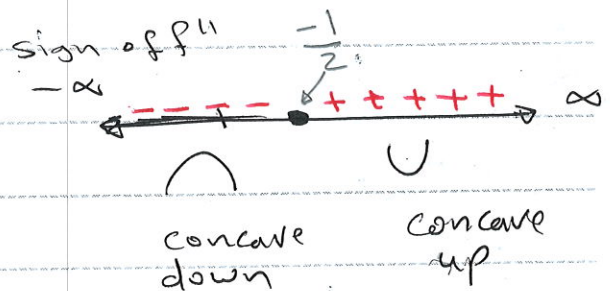 sign of f"
-1/2
-∞ - - - - + + + + + ∞
concave down
concave up